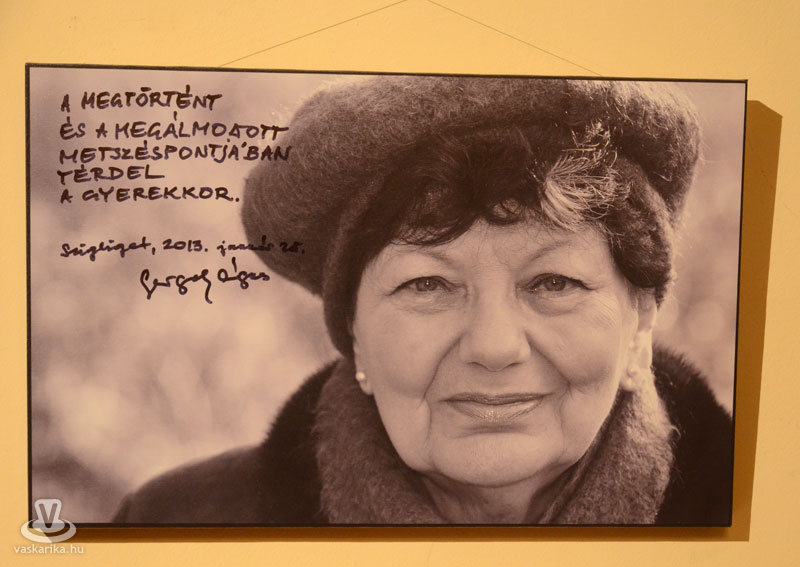 A MEGTÖRTÉNT
ÉS A MEGÁLMODOTT
METSZÉSPONTJÁBAN
TÉRDEL
A GYEREKKOR.
Szigliget, 2013. január 28.
Gergely Ágnes
V
vaskarika.hu